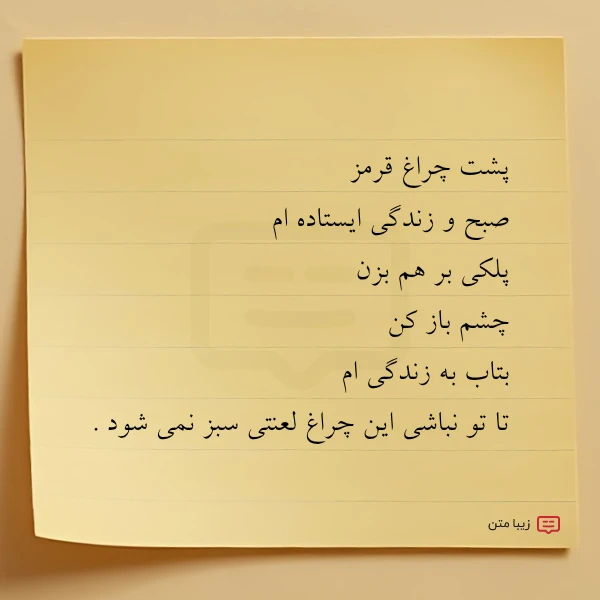 پشت چراغ قرمز
صبح و زندگی ایستاده ام
پلکی بر هم بزن
چشم باز کن
بتاب به زندگی ام
تا تو نباشی این چراغ لعنتی سبز نمی شود .
زیبا متن